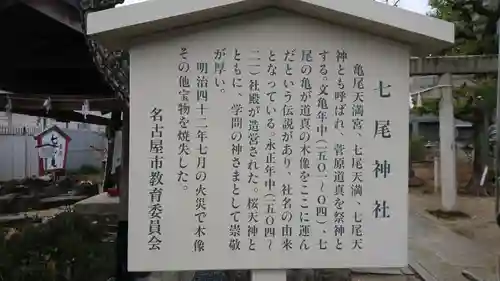 七尾神社
亀尾天満宮、七尾天満、七尾天
神とも呼ばれ、菅原道真を祭神と
する。文亀年中（一五〇一～〇四）、七
尾の亀が道真の木像をここに運ん
だという伝説があり、社名の由来
となっている。永正年中（一五〇四～
二一）社殿が造営された。桜天神と
ともに、学問の神さまとして崇敬
が厚い。
明治四十二年七月の火災で木像
その他宝物を焼失した。
名古屋市教育委員会